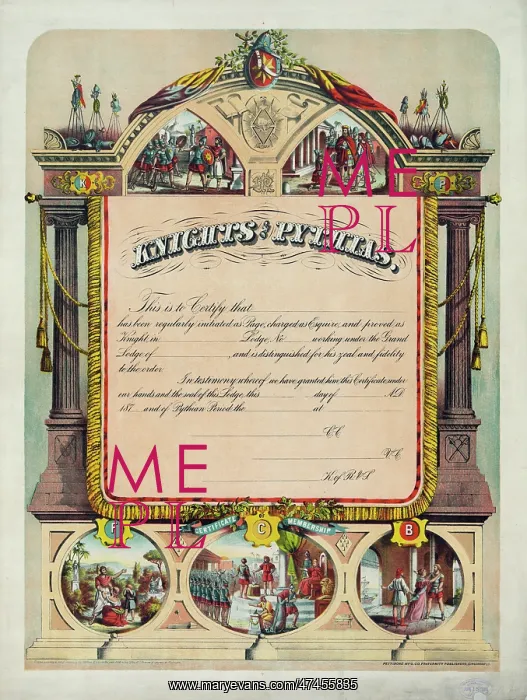 K
P
ME
PL
KNIGHTS of PYTHIAS,
This is to Certify that
has been regularly initiated as Page, charged as Esquire, and proved as
Knight, in Lodge, No working under the Grand
Lodge of , and is distinguished for his zeal and fidelity
to the order
In testimony whereof we have granted him this Certificate under
our hands and the seal of this Lodge, this day of A.D.
187 and of Pythian Period the at
C.C.
V.C.
K. of R. & S.
ME
PL
F
CERTIFICATE
C
MEMBERSHIP
B
www.maryevans.com/47455835